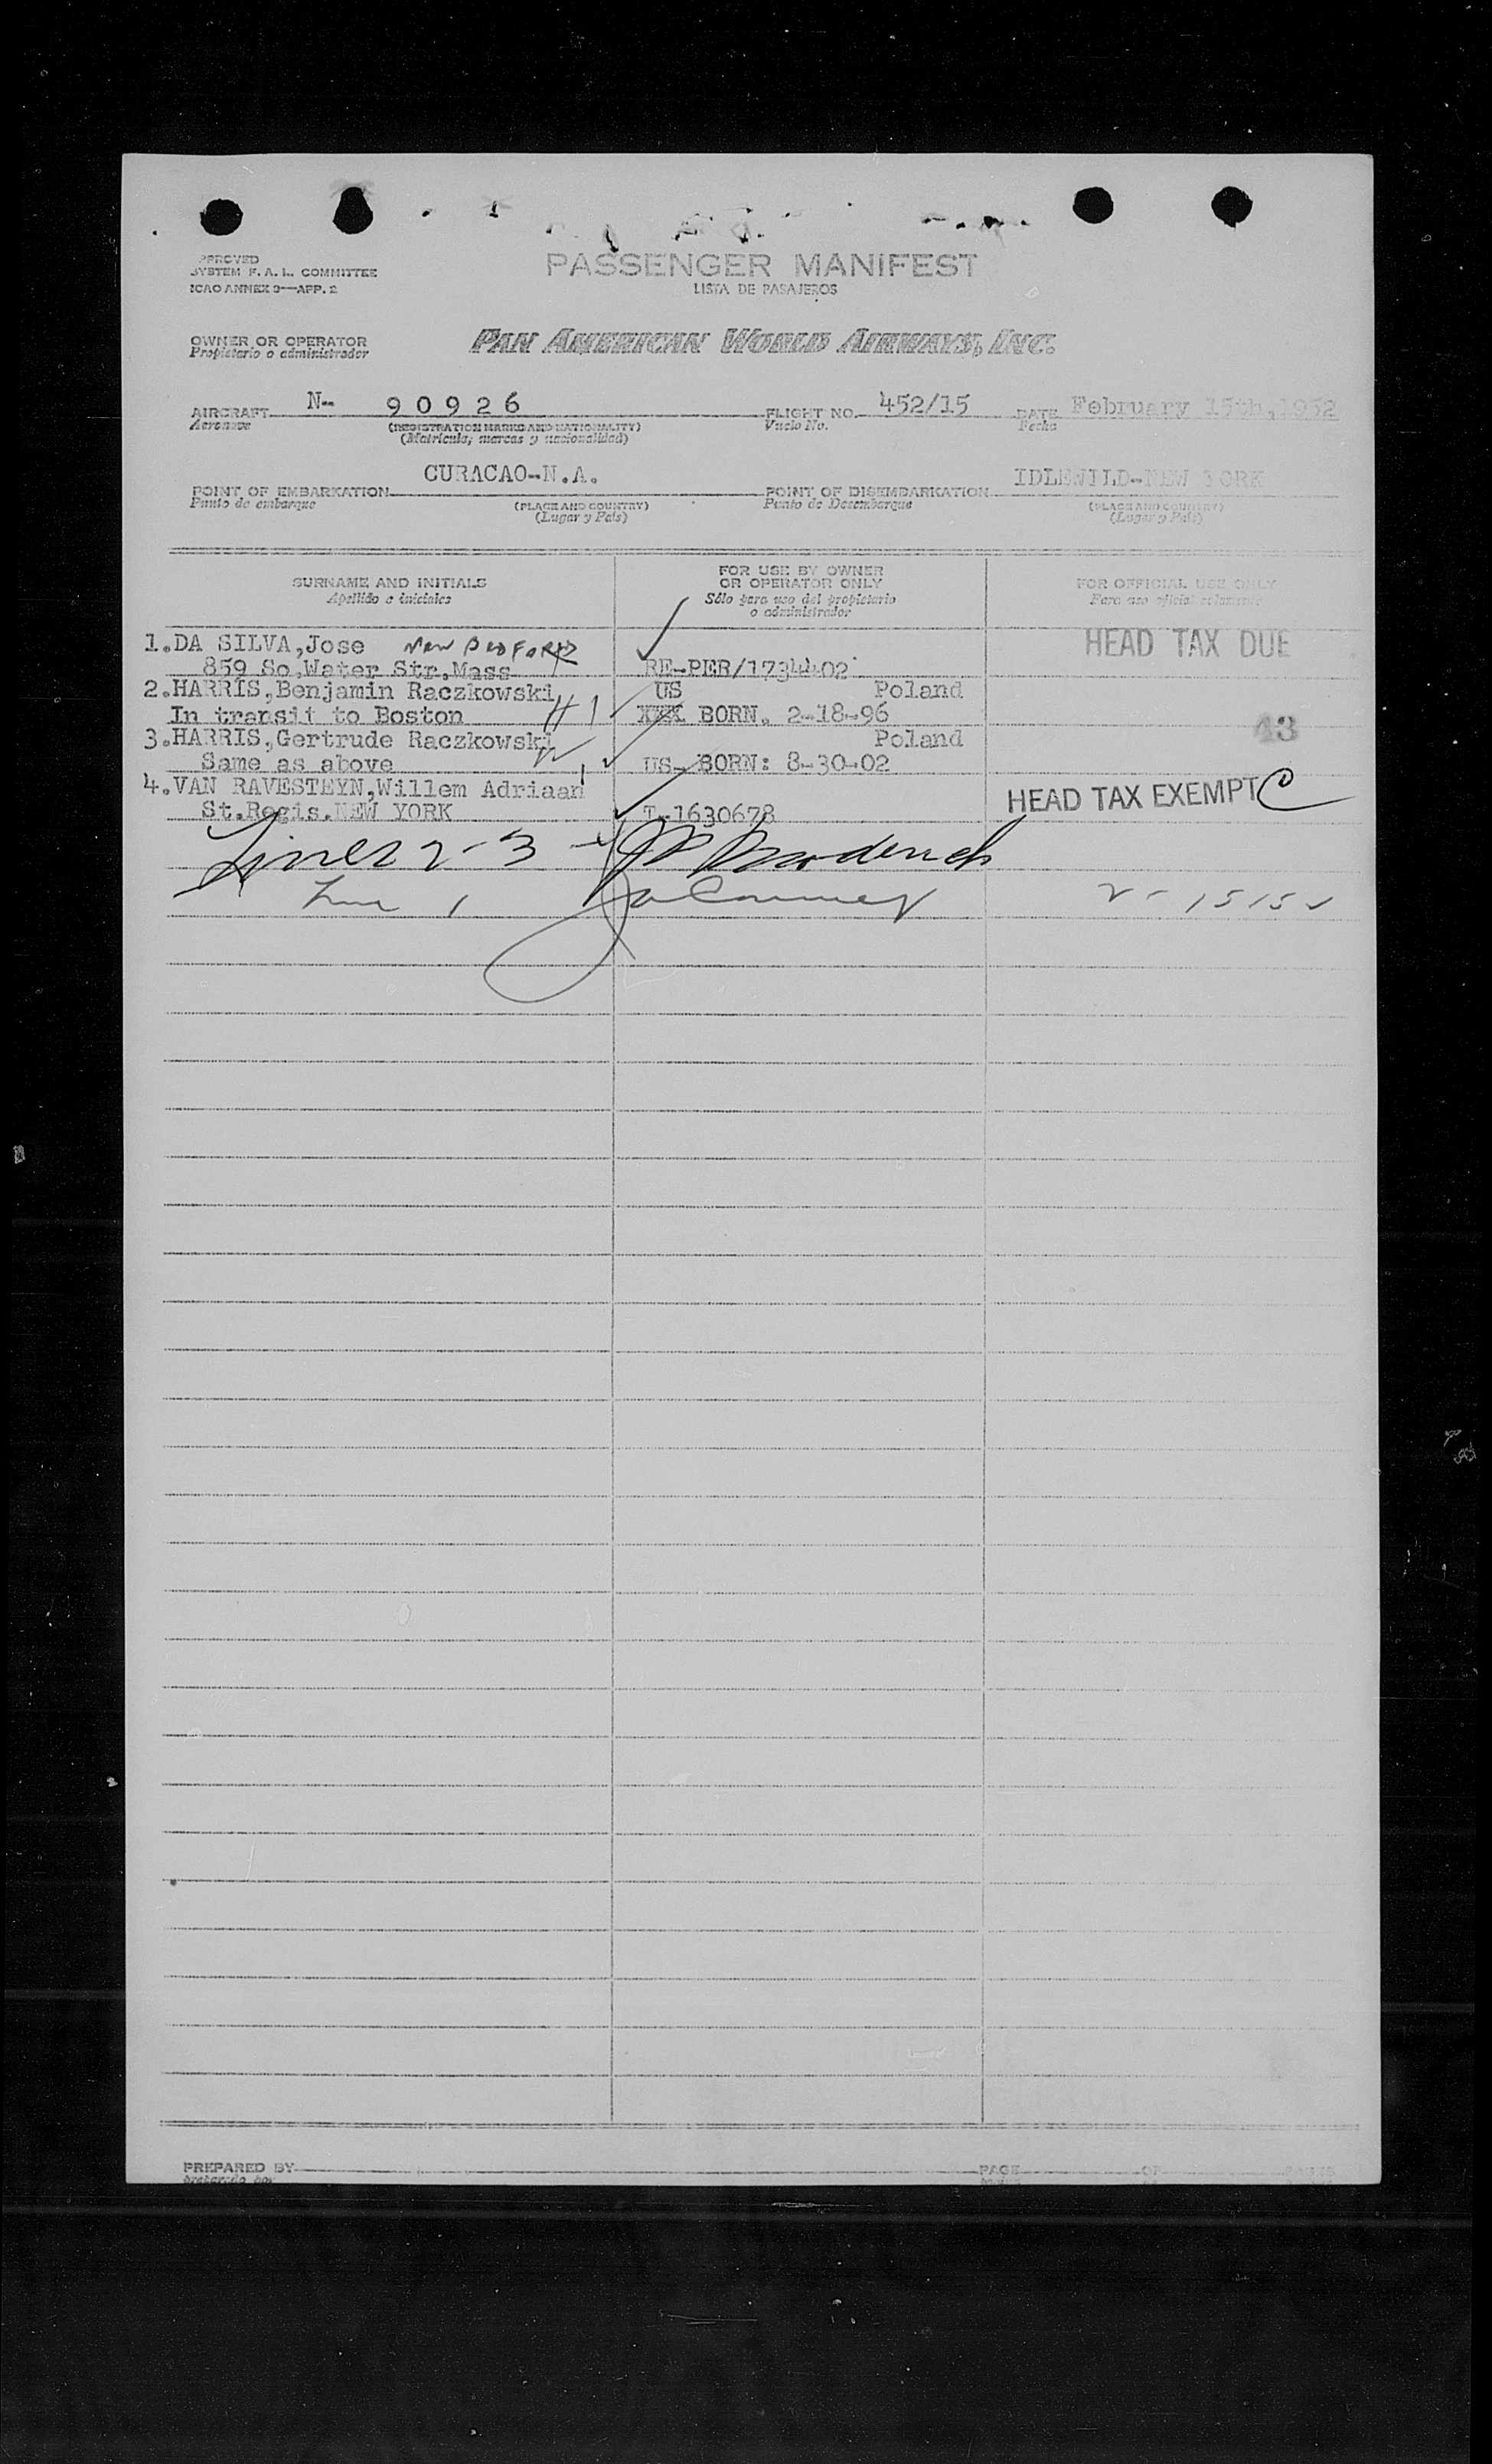 PPROVED
SYSTEM F. A. L. COMMITTEE
ICAO ANNEX 9—APP. 2
PASSENGER MANIFEST
LISTA DE PASAJEROS
OWNER OR OPERATOR
Propietario o administrador
PAN AMERICAN WORLD AIRWAYS, INC.
AIRCRAFT N-- 90926 FLIGHT NO. 452/15 DATE February 15th, 1952
Aeronave (REGISTRATION MARKS AND NATIONALITY) Vuelo No. Fecha
(Matrícula, marcas y nacionalidad)
POINT OF EMBARKATION CURACAO-N.A. POINT OF DISEMBARKATION IDLEWILD-NEW YORK
Punto de embarque (PLACE AND COUNTRY) Punto de Desembarque (PLACE AND COUNTRY)
(Lugar y País) (Lugar y País)
SURNAME AND INITIALS
Apellido e iniciales
FOR USE BY OWNER
OR OPERATOR ONLY
Sólo para uso del propietario
o administrador
FOR OFFICIAL USE ONLY
Para uso oficial solamente
1.DA SILVA,Jose New Bedford HEAD TAX DUE
859 So.Water Str.Mass RE-PER/1734402
2.HARRIS,Benjamin Raczkowski US Poland
In transit to Boston H 1 XXX BORN. 2-18-96 43
3.HARRIS,Gertrude Raczkowski W Poland
Same as above 1 US- BORN: 8-30-02
4.VAN RAVESTEYN,Willem Adriaan HEAD TAX EXEMPT C
St.Regis.NEW YORK T-1630678
Lines 2-3
Line 1 2-15-52
PREPARED BY PAGE OF